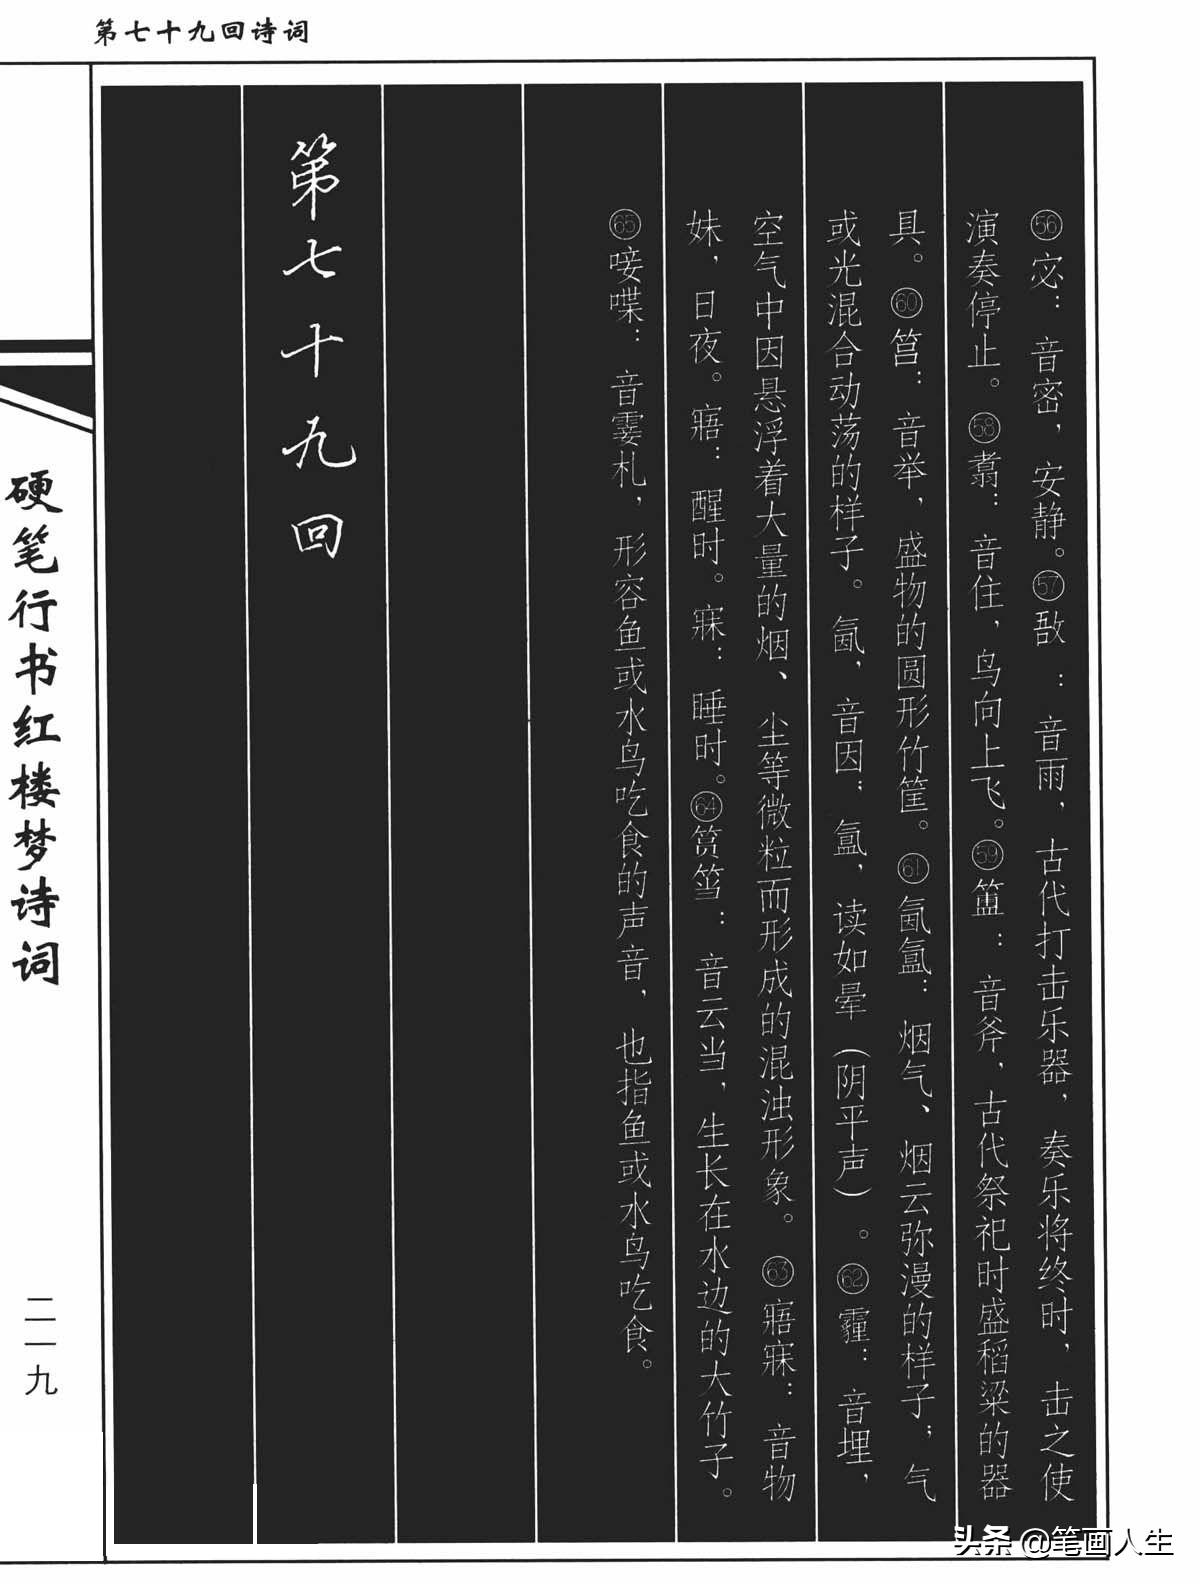 第七十九回诗词
㊽宓：音密，安静。㊼敔：音雨，古代打击乐器，奏乐将终时，击之使
演奏停止。㊽翥：音住，鸟向上飞。㊾簠：音斧，古代祭祀时盛稻粱的器
具。⑥⓪筥：音举，盛物的圆形竹筐。⑥①氤氲：烟气、烟云弥漫的样子；气
或光混合动荡的样子。氤，音因；氲，读如晕（阴平声）。⑥②霾：音埋，
空气中因悬浮着大量的烟、尘等微粒而形成的混浊形象。⑥③寤寐：音物
妹，日夜。寤：醒时。寐：睡时。⑥④筼筜：音云当，生长在水边的大竹子。
⑥⑤唼喋：音霎札，形容鱼或水鸟吃食的声音，也指鱼或水鸟吃食。
第七十九回
硬笔行书红楼梦诗词
二一九
头条 @笔画人生